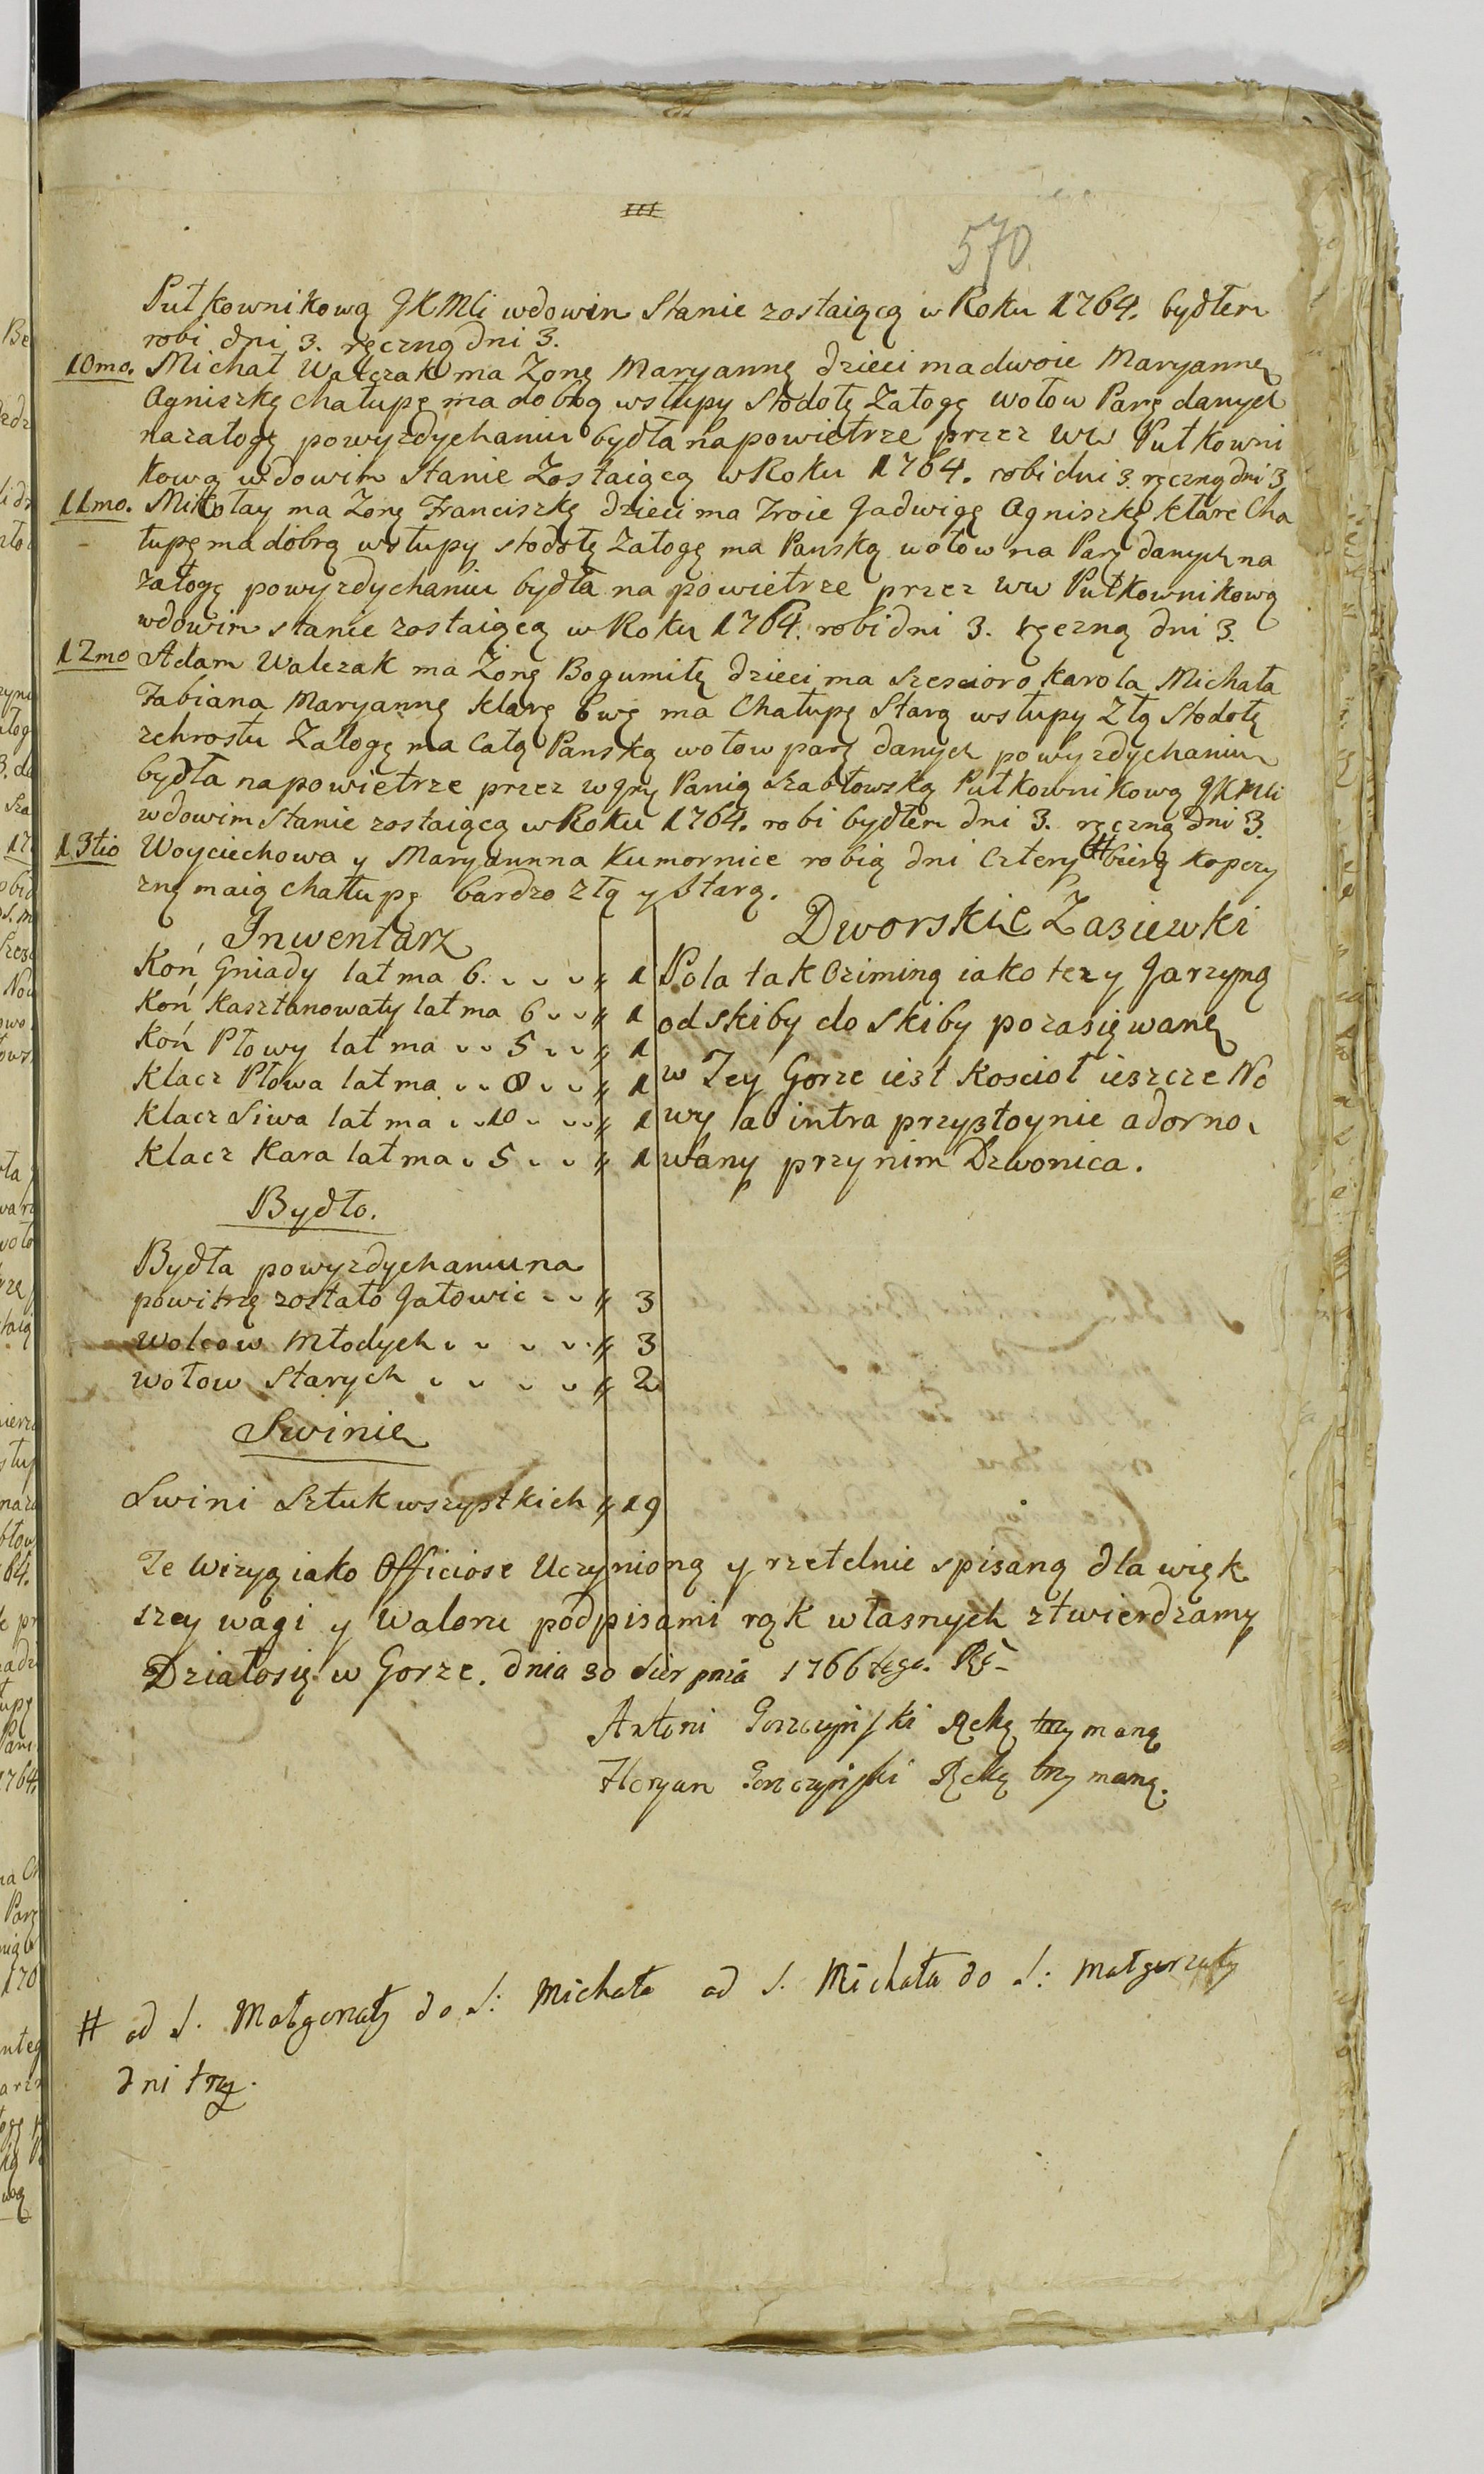 570
Pułkownikową JKMci wdowim Stanie zostaiącą w Roku 1764. bydłem
robi dni 3. ręczną dni 3.
10mo. Michał Walczak ma Zonę Maryannę dzieci ma dwoie Maryannę
Agniszkę chałupę ma dobrą wsłupy Stodołę Załogę wołow Parę danych
nazałogę powyzdychaniu bydła na powietrze przez WW Pułkowni
kową wdowim Stanie Zostaiącą w Roku 1764. robi dni 3. ręczną dni 3
11mo. Mikołay ma Zonę Franciszkę dzieci ma Troie Jadwigę Agniszkę klarę Cha
łupę ma dobrą wsłupy stodołę Załogę ma Panską wołow na Parę danych na
załogę powyzdychaniu bydła na powietrze przez WW Pułkownikową
wdowim stanie zostaiącą w Roku 1764. robi dni 3. ręczną dni 3.
12mo Adam Walczak ma Żonę Bogumiłę dzieci ma szescioro karola Michała
Fabiana Maryannę klarę Ewę ma Chałupę Starą wsłupy Złą Stodołę
zchrostu Załogę ma Całą Panską wołow parę danych powyzdychaniu
bydła na powietrze przez wJny Panią Szabłowską Pułkownikową JKMci
wdowim Stanie zostaiącą w Roku 1764. robi bydłem dni 3. ręczną dni 3.
13tio Woyciechowa y Maryanna Kumornice robią dni Cztery # biorą kopczy
znę maią Chałupę bardzo złą y Starą.
Inwentarz
Koń Gniady lat ma 6. 1
Koń Kasztanowaty lat ma 6 1
Koń Płowy lat ma 5 1
Klacz Płowa lat ma 8 1
Klacz Siwa lat ma 10 1
Klacz Kara lat ma 5 1
Bydło.
Bydła powyzdychaniu na
powitrzę zostało Jałowic 3
Wolcow Młodych 3
Wołow Starych 2
Swinie
Swini Sztuk wszystkich 19
Dworskie Zasiewki
Pola tak Oziminą iako tez y Jarzyną
od skiby do Skiby pozasięwanę
w Tey Gorze iest Kościoł ieszcze No
wy ab intra przystoynie adorno
wany przy nim Dzwonica.
Te Wizyą iako Officiose Uczynioną y rzetelnie spisaną dla więk
szey wagi y Waloru podpisami rąk własnych ztwierdzamy
Działosię w Gorze. dnia 30 Sierpnia 1766tego. Rę
Antoni Gorzczyński Rękę trzymaną
Floryan Gorzczyński Rękę trzymaną.
# od S. Małgorzaty do S: Michała od S. Michała do S: Małgorzaty
dni trzy.